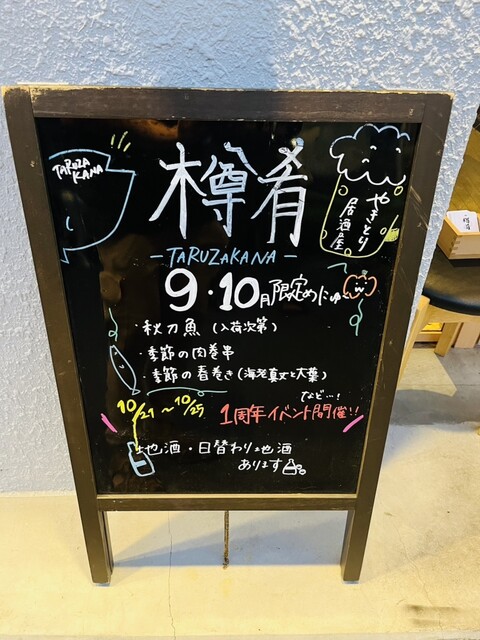 TARUZA
KANA
樽肴
- TARUZAKANA -
やきとり
居酒屋
9・10月限定めにゅー
・秋刀魚(入荷次第)
・季節の肉巻串
・季節の春巻き(海老真丈と大葉)
など…!
10/21〜10/25 1周年イベント開催!!
地酒・日替わり地酒
あります